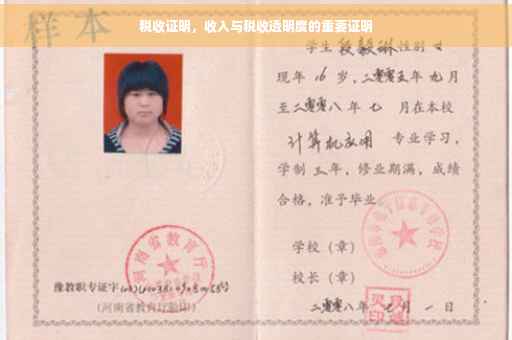 税收证明，收入与税收透明度的重要证明
样本
学生 段毅琳 性别 女
现年 16 岁，二零零五年 九 月
至二零零八年 七 月在本校
计算机应用 专业学习，
学制 三 年，修业期满，成绩
合格，准予毕业。
学校（章）
校长（章）
二零零八年 七 月 一 日
河南省教育厅
豫教职专证字
（河南省教育厅验印）